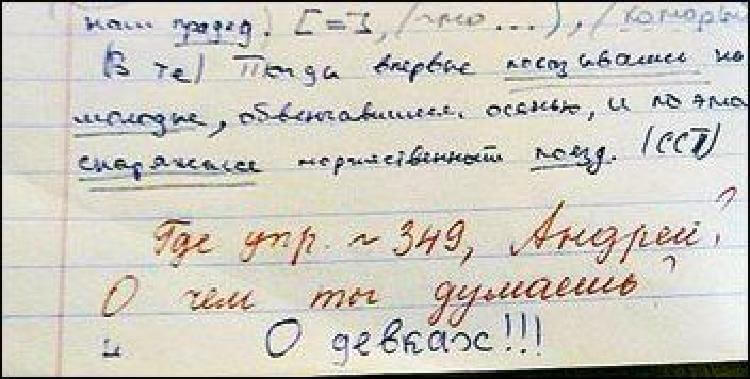 наш прадед. [=], (что ...), (которы
(В те) Тогда впервые показывались на
молодые, обвенчавшиеся осенью, и по это
снаряжался торжественный поезд. (ССП)
Где упр. ~ 349, Андрей?
О чем ты думаешь?
О девках!!!